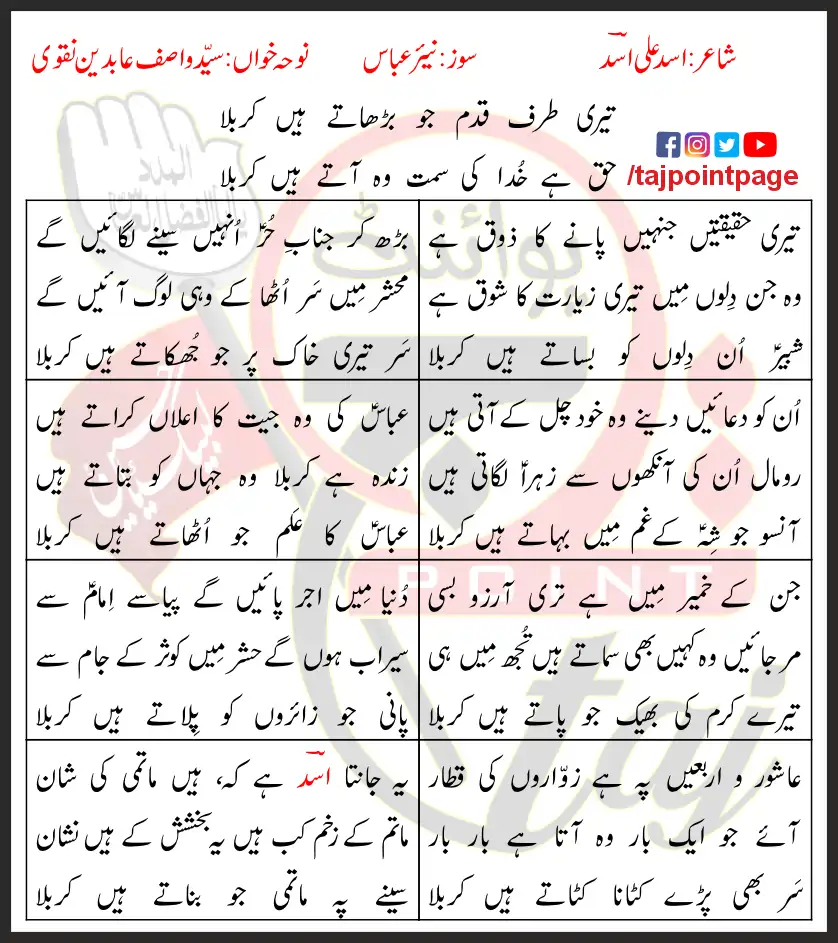 شاعر: اسد علی اسدؔ
سوز: نیئر عباس
نوحہ خواں: سیّد واصف عابدین نقوی
تیری طرف قدم جو بڑھاتے ہیں کربلا
حق ہے خُدا کی سمت وہ آتے ہیں کربلا
/tajpointpage
تیری حقیقتیں جنہیں پانے کا ذوق ہے
وہ جن دِلوں مِیں تیری زیارت کا شوق ہے
شبیرؑ اُن دِلوں کو بساتے ہیں کربلا
بڑھ کر جنابِ حُرؑ اُنہیں سینے لگائیں گے
محشر مِیں سَر اُٹھا کے وہی لوگ آئیں گے
سَر تیری خاک پر جو جُھکاتے ہیں کربلا
اُن کو دعائیں دینے وہ خود چل کے آتی ہیں
رومال اُن کی آنکھوں سے زہراؑ لگاتی ہیں
آنسو جو شِہؑ کے غم مِیں بہاتے ہیں کربلا
عباسؑ کی وہ جیت کا اعلاں کراتے ہیں
زندہ ہے کربلا وہ جہاں کو بتاتے ہیں
عباسؑ کا عَلم جو اُٹھاتے ہیں کربلا
جن کے خمیر مِیں ہے تری آرزو بسی
مر جائیں وہ کہیں بھی سماتے ہیں تُجھ مِیں ہی
تیرے کرم کی بھیک جو پاتے ہیں کربلا
دُنیا مِیں اجر پائیں گے پیاسے اِمامؑ سے
سیراب ہوں گے حشر مِیں کوثر کے جام سے
پانی جو زائروں کو پِلاتے ہیں کربلا
عاشور و اربعیں پہ ہے زوّاروں کی قطار
آئے جو ایک بار وہ آتا ہے بار بار
سَر بھی پڑے کٹانا کٹاتے ہیں کربلا
یہ جانتا اسدؔ ہے کہ، ہیں ماتمی کی شان
ماتم کے زخم کب ہیں یہ بخشش کے ہیں نشان
سینے پہ ماتمی جو بناتے ہیں کربلا
پوائنٹ
POINT
taj